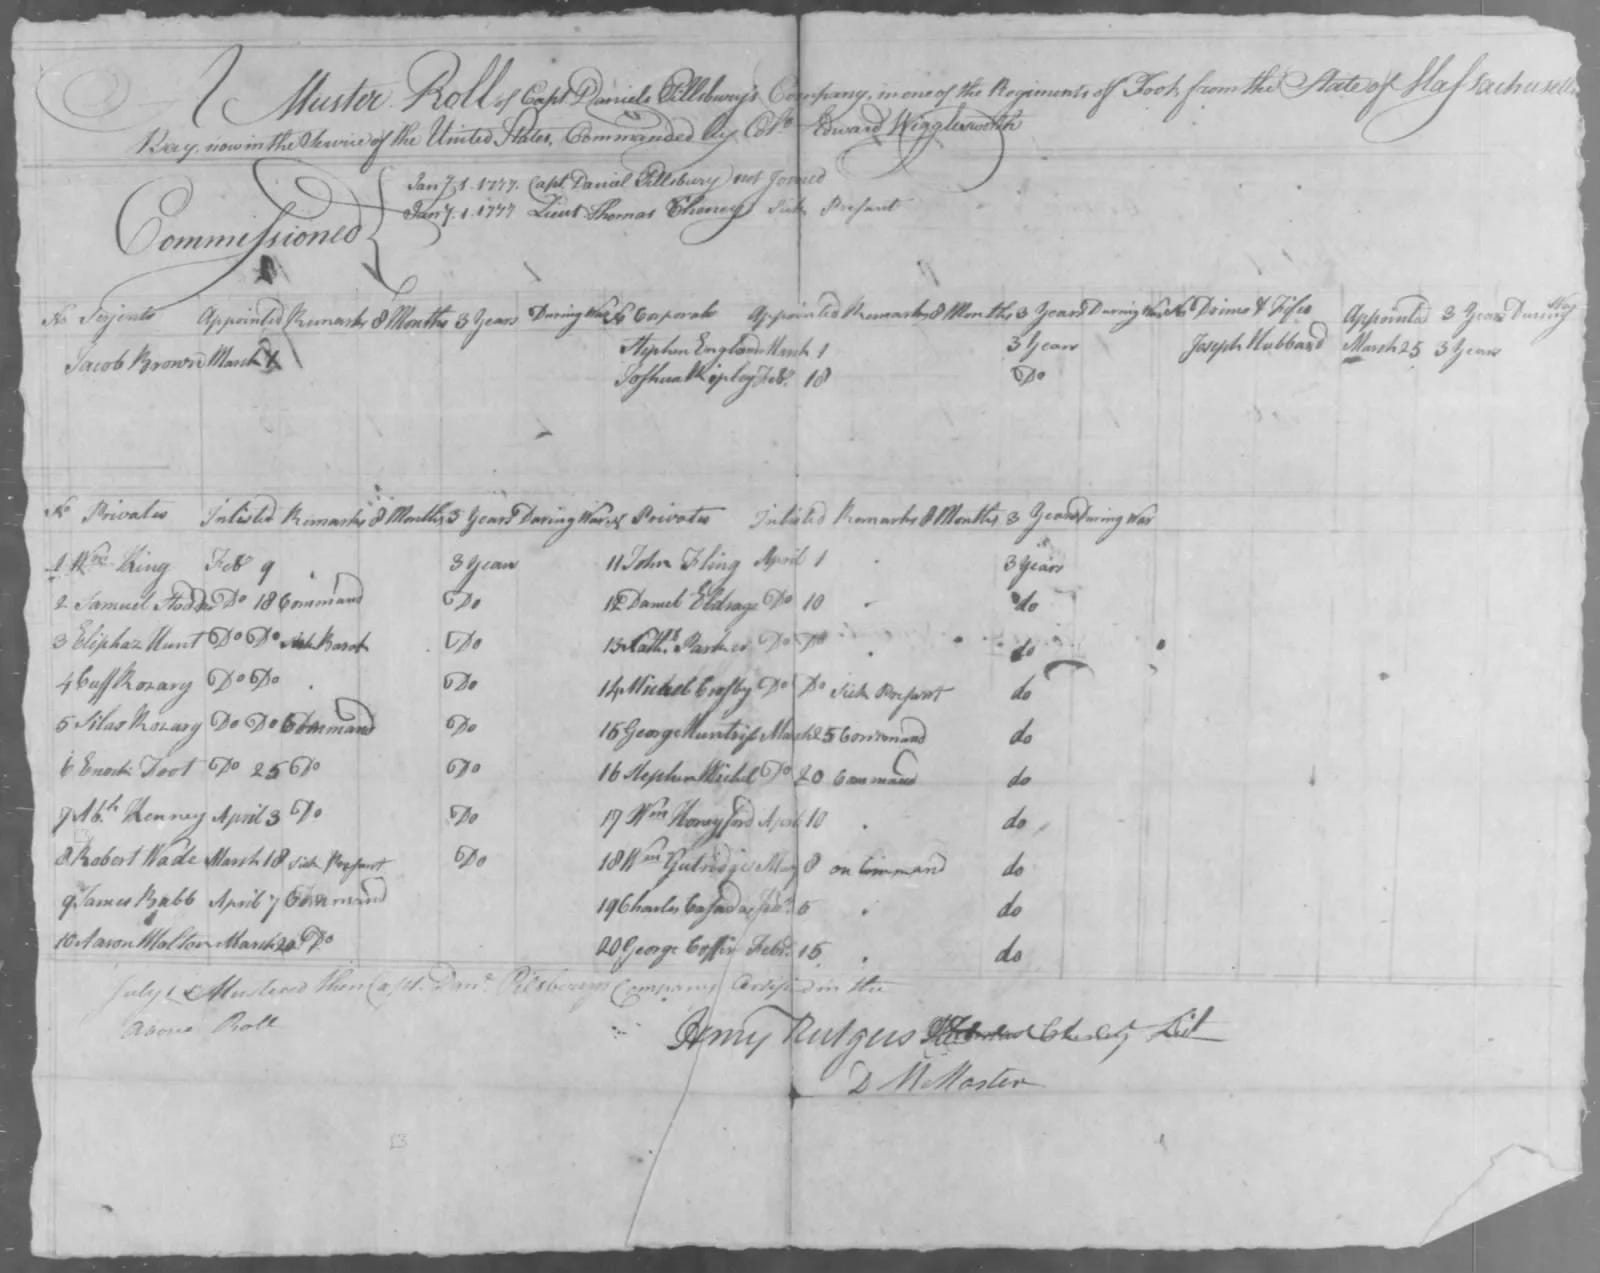 A Muster Roll of Capt Daniele Pillsbury's Company, in one of the Regiments of Foot from the State of Massachusetts
Bay, now in the Service of the United States, Commanded by Colo. Edward Wigglesworth
Commissioned
Jany. 1. 1777. Capt Daniel Pillsbury not Joined
Jany. 1. 1777 Lieut Thomas Cheney Sick Present
No Serjents Appointed Remarks 8 Months 3 Years During War No Corporals Appointed Remarks 8 Months 3 Years During War No Drums & Fifes Appointed 3 Years During War
Jacob Brown March 1 Stephen England March 1 3 Years Joseph Hubbard March 25 3 Years
Joshua Ripley Feb. 18 Do
No Privates Inlisted Remarks 8 Months 3 Years During War No Privates Inlisted Remarks 8 Months 3 Years During War
1 Wm King Feb 9 3 Years 11 John Fling April 1 3 Years
2 Samuel Do 18 Command Do 12 Daniel Eldrage Do 10 do
3 Eliphaz Hunt Do Do Sick Do 13 Nathl. Parker Do Do do
4 Cuff Rozary Do Do Do 14 Michel Crosby Do Do Sick Present do
5 Silas Rozary Do Do Command Do 15 George Huntris March 25 Command do
6 Enoch Foot Do 25 Do Do 16 Stephen Michel Do 20 Command do
7 Ab.h Kenney April 3 Do Do 17 Wm Honeyford April 10 do
8 Robert Wade March 18 Sick Present Do 18 Wm Gutridge May 8 on Command do
9 James Babb April 7 Command 19 Charles 6 do
10 Aaron Malton March 20 Do 20 George Coffin Feby. 15 do
July 1 Mustered then Capt. Danl. Pilsburys Company Cersified in the
above Roll
Henry Rutgers Lit
D M Master